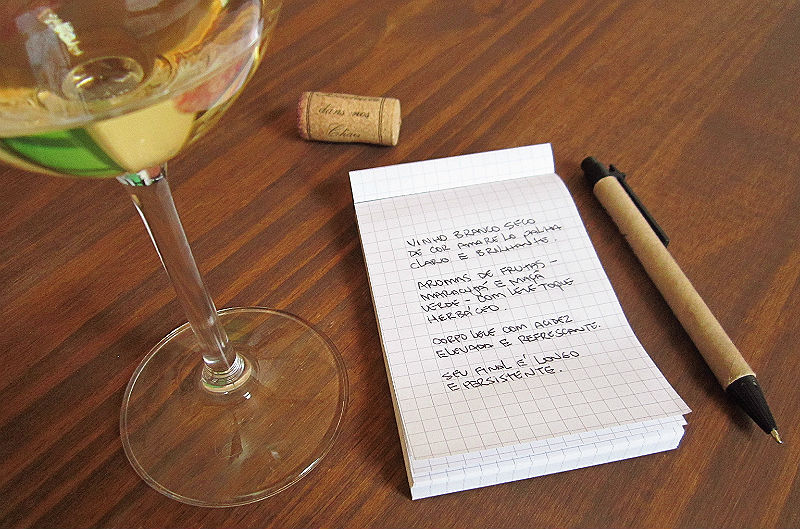 dans nos
Chais
VINHO BRANCO SECO
DE COR AMARELO PALHA
CLARO E BRILHANTE.
AROMAS DE FRUTAS -
MARACUJÁ E MAÇÃ
VERDE - COM LEVE TOQUE
HERBÁCEO.
CORPO LEVE COM ACIDEZ
ELEVADA E REFRESCANTE.
SEU FINAL É LONGO
E PERSISTENTE.